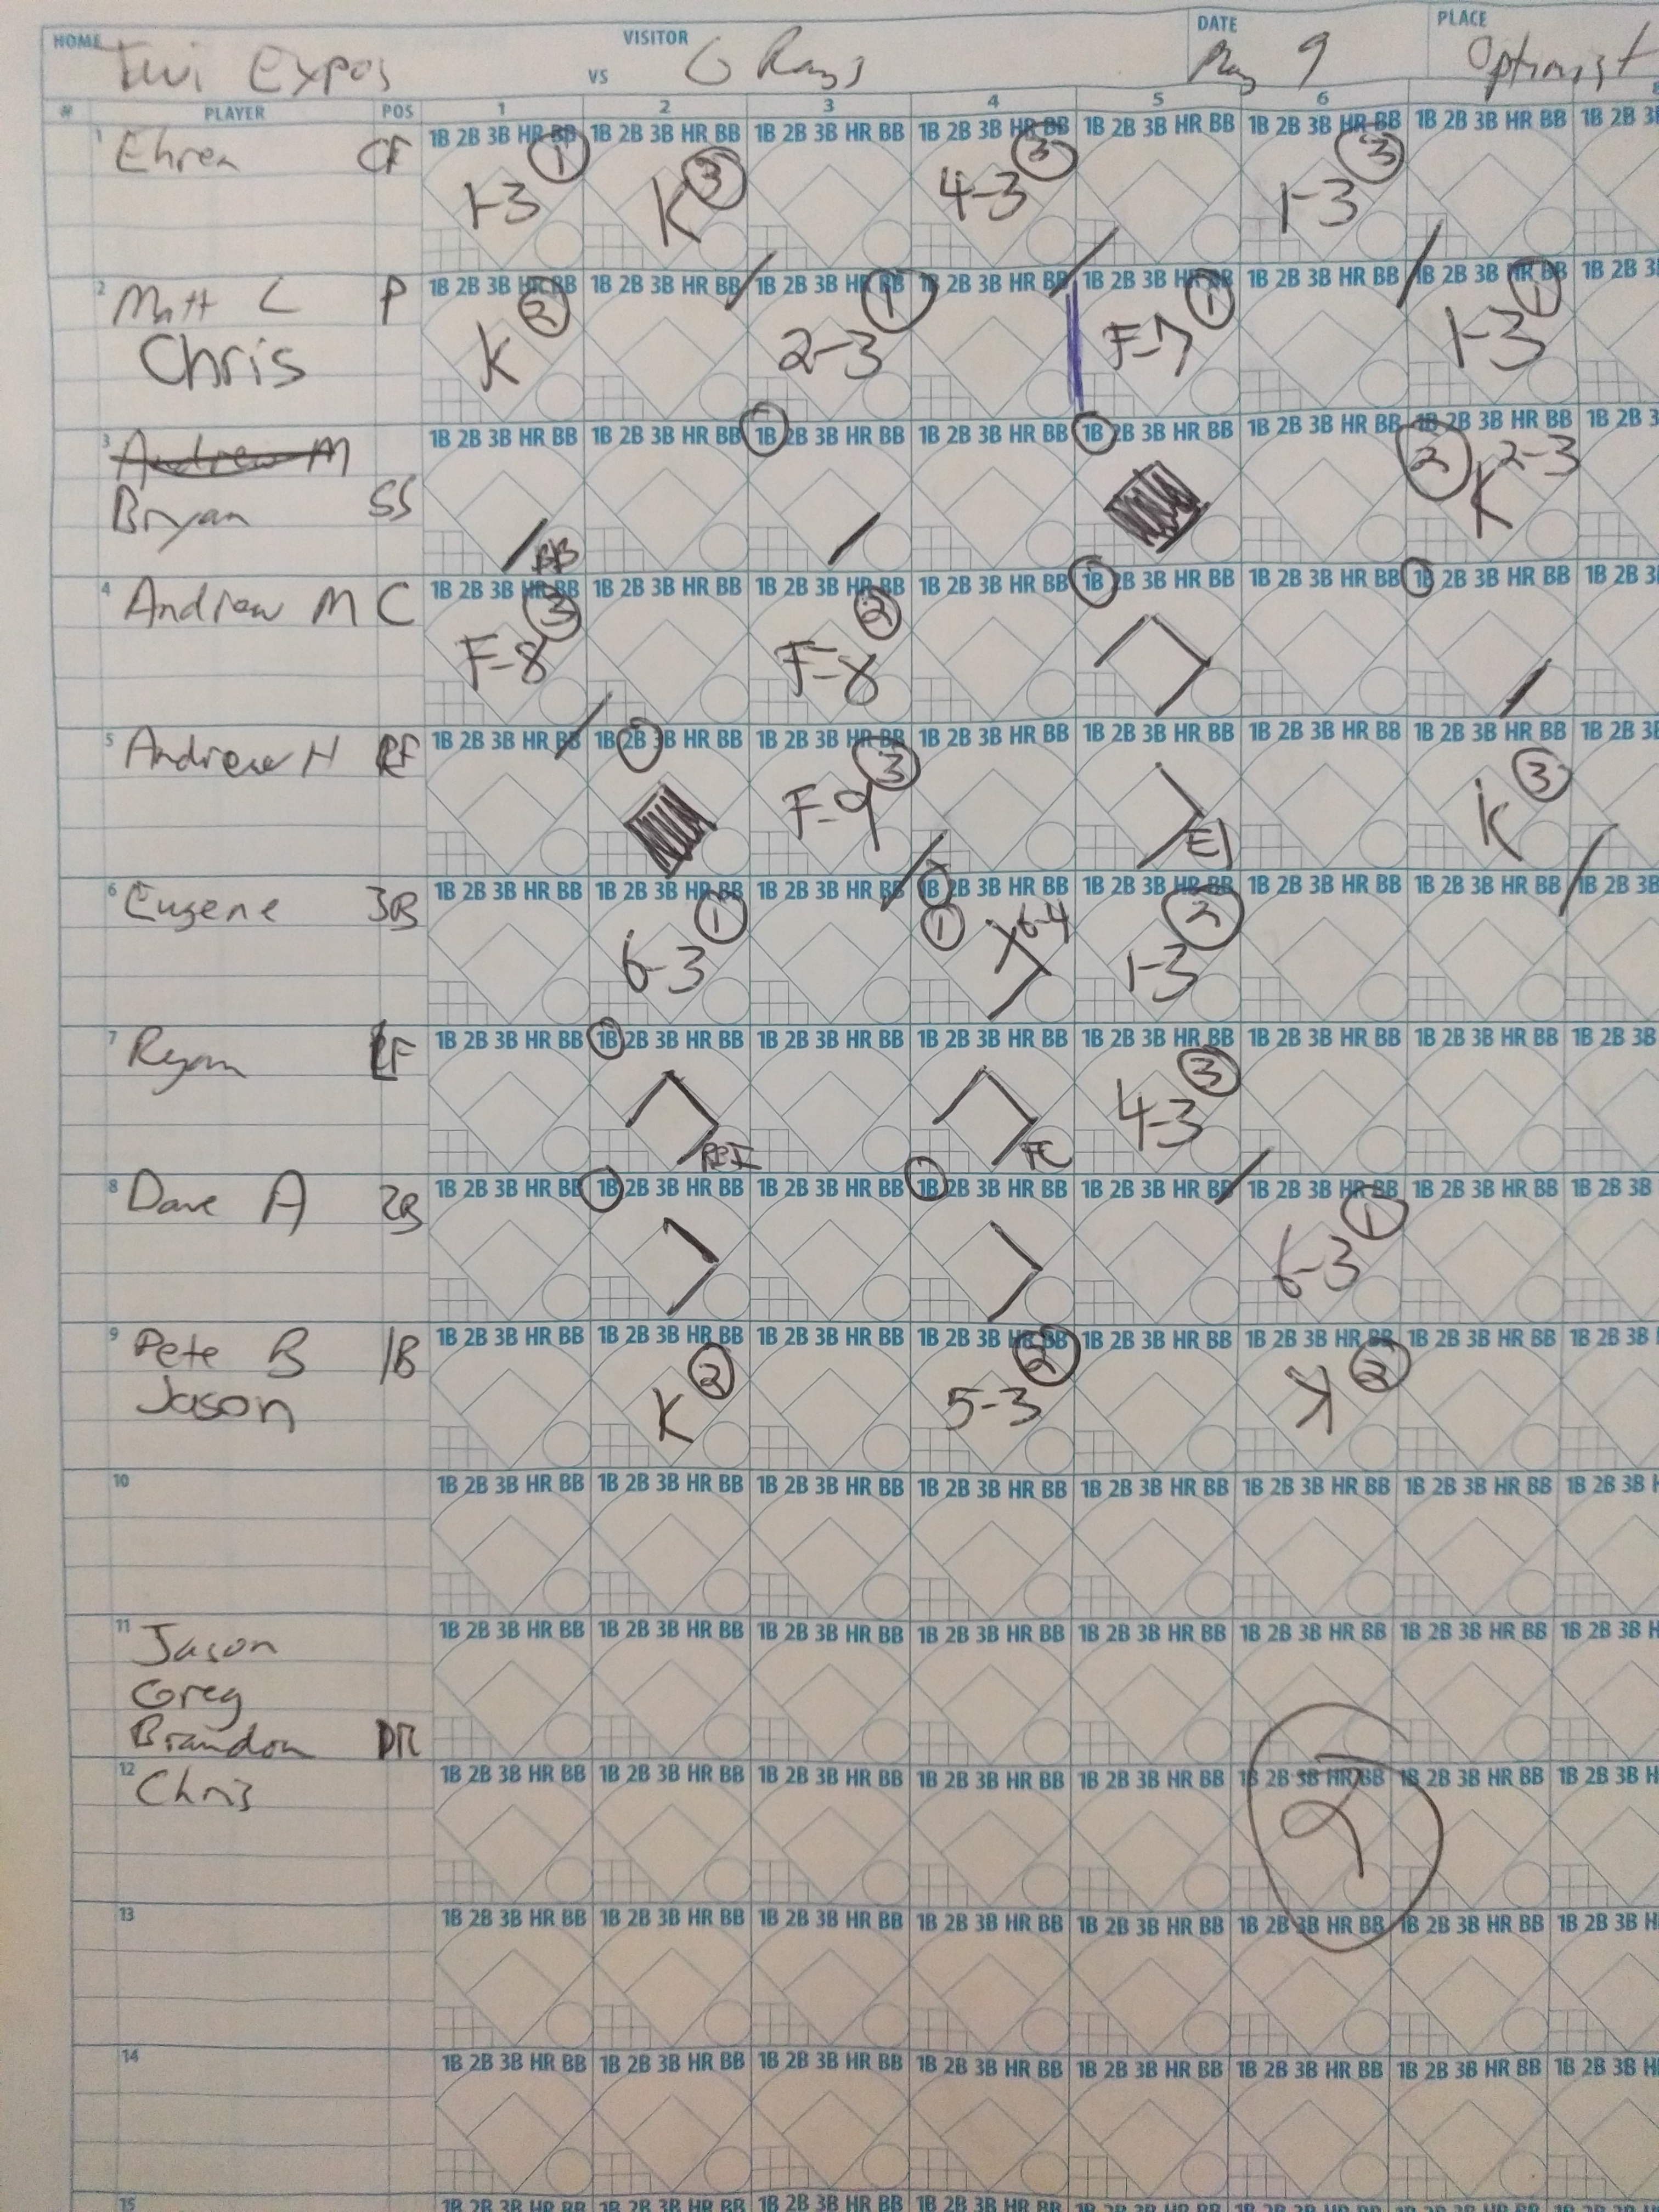 HOME Twi Expos VISITOR VS G Rays DATE May 9 PLACE Optimist
# PLAYER POS 1 2 3 4 5 6 8
1B 2B 3B HR BB 1B 2B 3B HR BB 1B 2B 3B HR BB 1B 2B 3B HR BB 1B 2B 3B HR BB 1B 2B 3B HR BB 1B 2B 3B HR BB 1B 2B 3B
1 Ehren CF 1-3 1 K 3 4-3 3 1-3 3
1B 2B 3B HR BB 1B 2B 3B HR BB 1B 2B 3B HR BB 1B 2B 3B HR BB 1B 2B 3B HR BB 1B 2B 3B HR BB 1B 2B 3B HR BB 1B 2B 3B
2 Matt C P K 2 2-3 1 F-7 1 1-3 1
Chris
1B 2B 3B HR BB 1B 2B 3B HR BB 1B 2B 3B HR BB 1B 2B 3B HR BB 1B 2B 3B HR BB 1B 2B 3B HR BB 1B 2B 3B HR BB 1B 2B 3B
3 Andrew M 2 K 2-3
Bryan SS BB
1B 2B 3B HR BB 1B 2B 3B HR BB 1B 2B 3B HR BB 1B 2B 3B HR BB 1B 2B 3B HR BB 1B 2B 3B HR BB 1B 2B 3B HR BB 1B 2B 3B
4 Andrew M C F-8 3 F-8 2
1B 2B 3B HR BB 1B 2B 3B HR BB 1B 2B 3B HR BB 1B 2B 3B HR BB 1B 2B 3B HR BB 1B 2B 3B HR BB 1B 2B 3B HR BB 1B 2B 3B
5 Andrew H RF F-9 3 E1 K 3
1B 2B 3B HR BB 1B 2B 3B HR BB 1B 2B 3B HR BB 1B 2B 3B HR BB 1B 2B 3B HR BB 1B 2B 3B HR BB 1B 2B 3B HR BB 1B 2B 3B
6 Eugene 3B 6-3 1 1 6-4 1-3 2
1B 2B 3B HR BB 1B 2B 3B HR BB 1B 2B 3B HR BB 1B 2B 3B HR BB 1B 2B 3B HR BB 1B 2B 3B HR BB 1B 2B 3B HR BB 1B 2B 3B
7 Ryan LF RBI FC 4-3 3
1B 2B 3B HR BB 1B 2B 3B HR BB 1B 2B 3B HR BB 1B 2B 3B HR BB 1B 2B 3B HR BB 1B 2B 3B HR BB 1B 2B 3B HR BB 1B 2B 3B
8 Dave A 2B 6-3 1
1B 2B 3B HR BB 1B 2B 3B HR BB 1B 2B 3B HR BB 1B 2B 3B HR BB 1B 2B 3B HR BB 1B 2B 3B HR BB 1B 2B 3B HR BB 1B 2B 3B
9 Pete B 1B K 2 5-3 2 K 2
Jason
10 1B 2B 3B HR BB 1B 2B 3B HR BB 1B 2B 3B HR BB 1B 2B 3B HR BB 1B 2B 3B HR BB 1B 2B 3B HR BB 1B 2B 3B HR BB 1B 2B 3B H
1B 2B 3B HR BB 1B 2B 3B HR BB 1B 2B 3B HR BB 1B 2B 3B HR BB 1B 2B 3B HR BB 1B 2B 3B HR BB 1B 2B 3B HR BB 1B 2B 3B H
11 Jason
Greg
Brandon
1B 2B 3B HR BB 1B 2B 3B HR BB 1B 2B 3B HR BB 1B 2B 3B HR BB 1B 2B 3B HR BB 1B 2B 3B HR BB 1B 2B 3B HR BB 1B 2B 3B H
12 Chris
13 1B 2B 3B HR BB 1B 2B 3B HR BB 1B 2B 3B HR BB 1B 2B 3B HR BB 1B 2B 3B HR BB 1B 2B 3B HR BB 1B 2B 3B HR BB 1B 2B 3B H
14 1B 2B 3B HR BB 1B 2B 3B HR BB 1B 2B 3B HR BB 1B 2B 3B HR BB 1B 2B 3B HR BB 1B 2B 3B HR BB 1B 2B 3B HR BB 1B 2B 3B H
15 1B 2B 3B HR BB 1B 2B 3B HR BB 1B 2B 3B HR BB 1B 2B 3B HR BB 1B 2B 3B HR BB 1B 2B 3B HR BB 1B 2B 3B HR BB 1B 2B 3B H